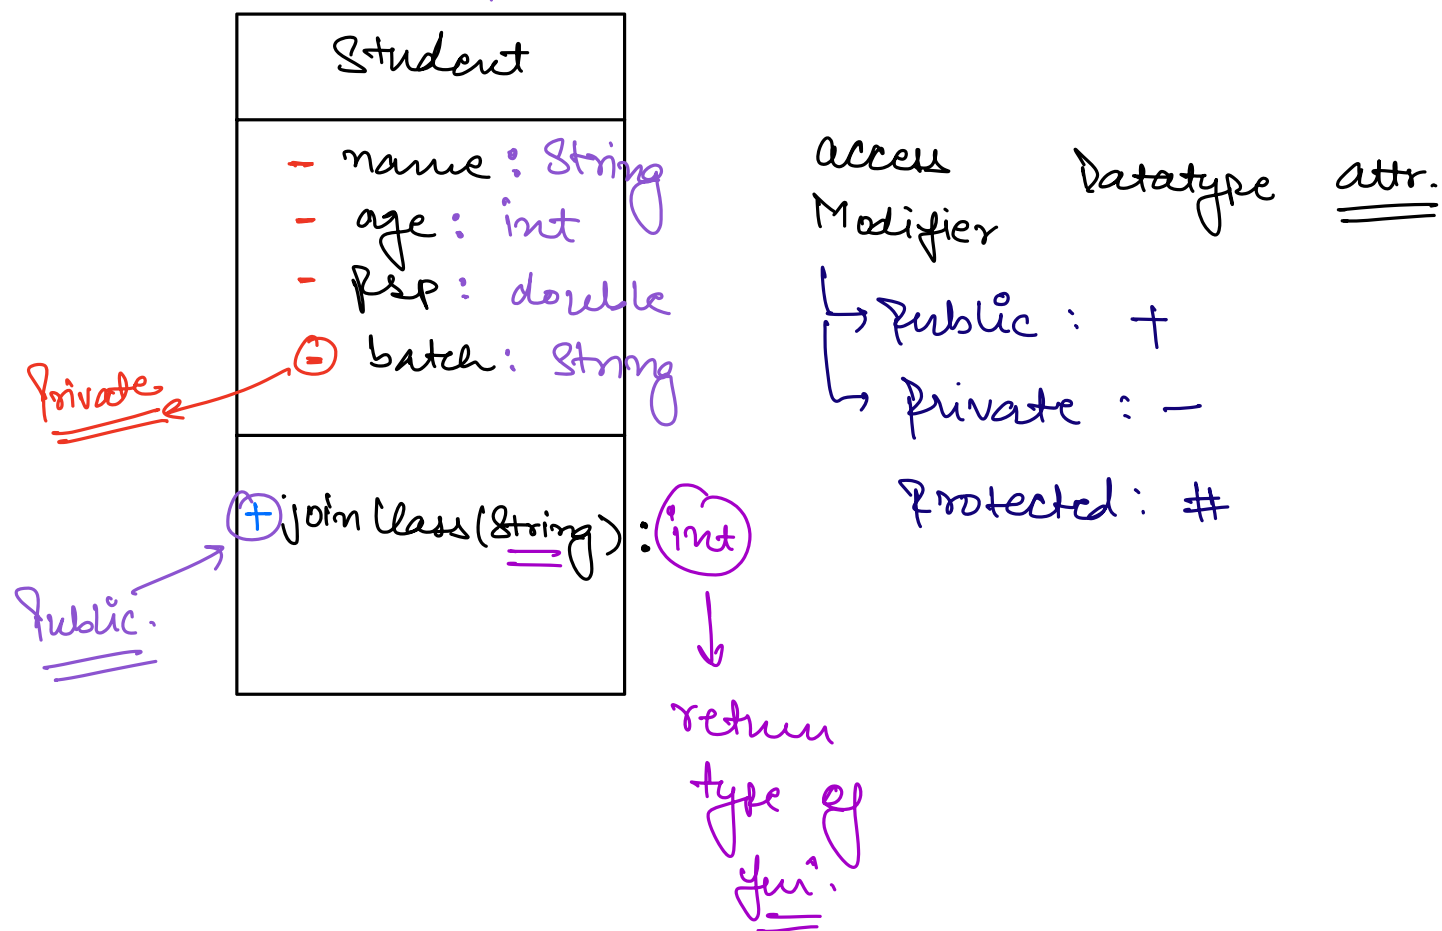 Student
- name : String
- age : int
- psp : double
- batch : String
Private
+ joinClass(String) : int
Public.
return
type of
fun^n.
access
Modifier
Datatype attr.
Public : +
Private : -
Protected : #